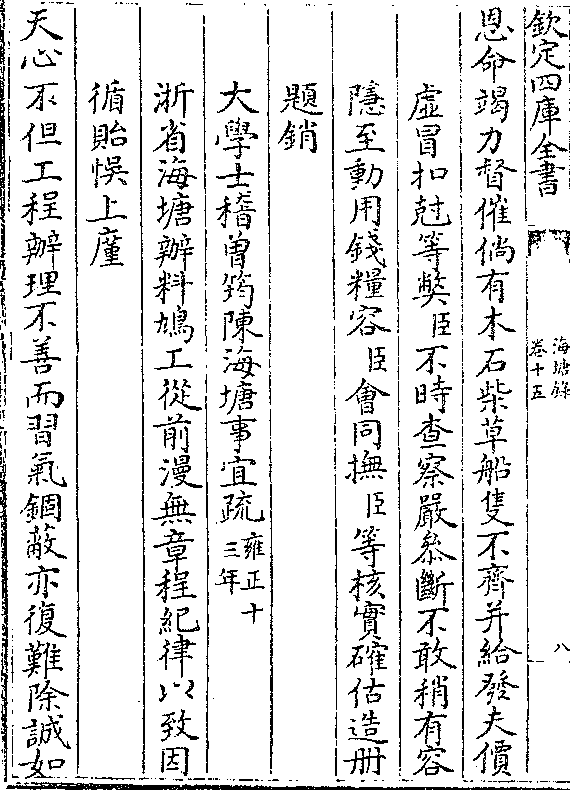 欽定四庫全書
海塘錄
卷十五
八
恩命竭力督催倘有木石柴草船隻不齊并給發夫價
虛冒扣尅等獘臣不時查察嚴叅斷不敢稍有容
隱至動用錢糧容臣會同撫臣等核實確估造册
題銷
大學士稽曾筠陳海塘事宜疏雍正十三年
浙省海塘辦料鳩工從前漫無章程紀律以致因
循貽悞上廑
天心不但工程辦理不善而習氣錮蔽亦復難除誠如